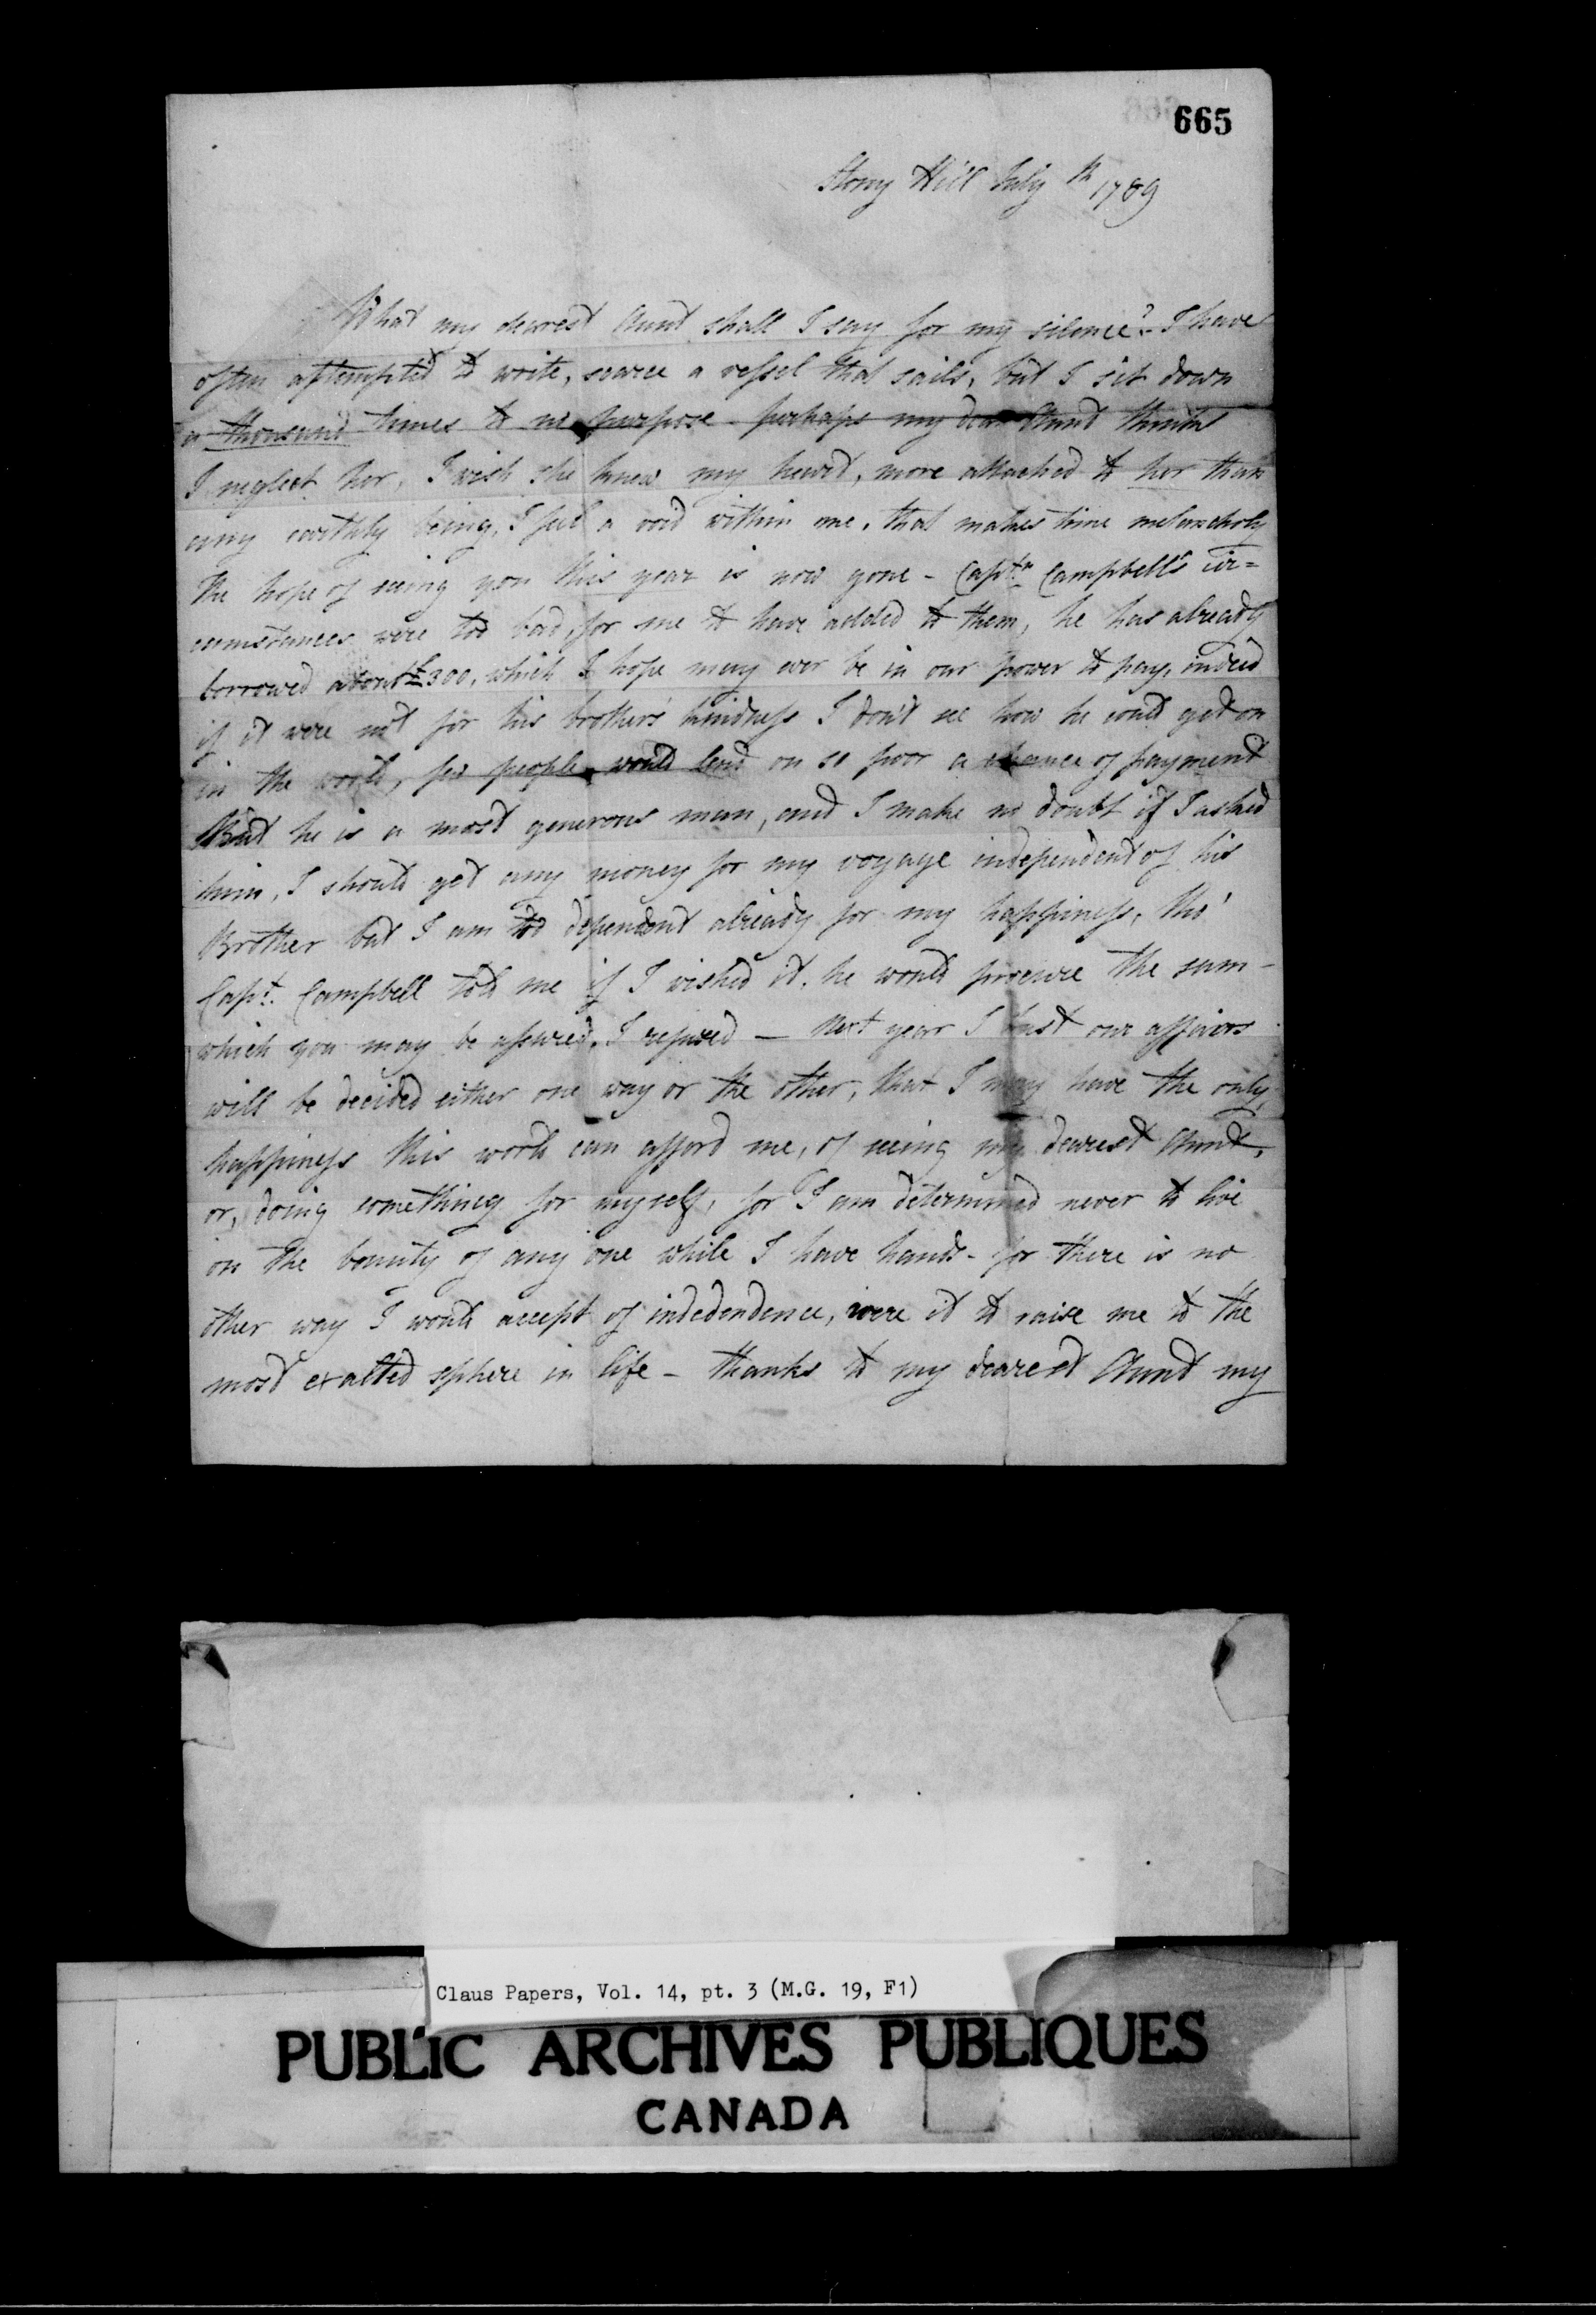 665
Stony Hill July th 1789
What my dearest Aunt shall I say for my silence? - I have
often attempted to write, scarce a vessel that sails, but I sit down
a thousand times to no purpose - perhaps my dear Aunt thinks
I neglect her, I wish she knew my heart, more attached to her than
any earthly being, I feel a void within me, that makes time melancholy
The hope of seeing you this year is now gone - Captn. Campbell's cir=
cumstances were too bad, for me to have added to them, he has already
borrowed about £300, which I hope may ever be in our power to pay, indeed
if it were not for his brother's kindness I don't see how he could get on
in the world, few people would lend on so poor a chance of payment
But he is a most generous man, and I make no doubt if I asked
him, I should get any money for my voyage independent of his
Brother but I am too dependent already for my happiness, tho'
Capt. Campbell told me if I wished it, he would procure the sum -
which you may be assured, I refused - Next year I trust our affairs
will be decided either one way or the other, that I may have the only
happiness this world can afford me, of seeing my dearest Aunt,
or, doing something for myself, for I am determined never to live
on the bounity of any one while I have hands - for there is no
other way I would accept of indedendence, were it to raise me to the
most exalted sphere in life - thanks to my dearest Aunt my
Claus Papers, Vol. 14, pt. 3 (M.G. 19, F1)
PUBLIC ARCHIVES PUBLIQUES
CANADA